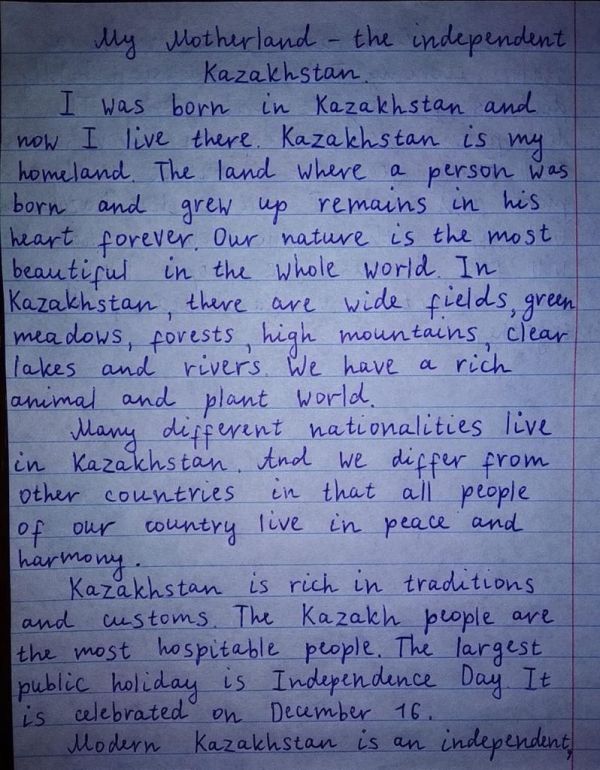 My Motherland - the independent
Kazakhstan.
I was born in Kazakhstan and
now I live there. Kazakhstan is my
homeland. The land where a person was
born and grew up remains in his
heart forever. Our nature is the most
beautiful in the whole world. In
Kazakhstan, there are wide fields, green
meadows, forests, high mountains, clear
lakes and rivers. We have a rich
animal and plant world.
Many different nationalities live
in Kazakhstan. And we differ from
other countries in that all people
of our country live in peace and
harmony.
Kazakhstan is rich in traditions
and customs. The Kazakh people are
the most hospitable people. The largest
public holiday is Independence Day. It
is celebrated on December 16.
Modern Kazakhstan is an independent,